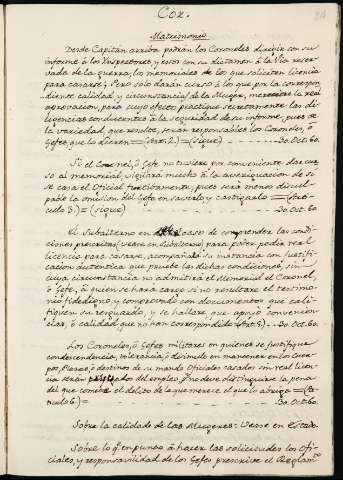 Cor.
Matrimonio
Desde Capitán arriba podrán los Coroneles dirigir con su
informe á los Inspectores, y estos con su dictamen á la Via reser-
vada de la guerra, los memoriales de los que soliciten licencia
para casarse; Pero solo darán curso á los que por la correspon-
diente calidad, y circunstancias de la Muger, merezcan la real
aprovacion, para cuyo efecto practiquen secretamente las di-
ligencias conducentes á la seguridad de su informe, pues de
la variedad que resulte, serán responsables los Coroneles, ó
Gefes, que lo dieren = (Art. 2.) = (sigue) 30. Oct. 60.
Si el Coronel, ó Gefe no tuviere por conveniente dar cur-
so al memorial, vigilará mucho á la averiguacion de si
se casa el Oficial furtibamente, pues será menos discul-
pable la omision del Gefe en saverlo y castigarlo = (Artí-
culo 3.) = (sigue) 30. Oct. 60.
El Subalterno en caso de comprender las condi-
ciones prescritas (vease en Subalterno) para poder pedir real
licencia para casarse, acompañará su instancia con justifi-
cacion autentica que pruebe las dichas condiciones, sin
cuya circunstancia no admitirá el memorial el Coronel,
ó Gefe, á quien se hará cargo si no resultare el testimo-
nio fidedigno, y comprovado con documentos que cali-
fiquen su resguardo, y se hallare, que apoyó convenien-
cias, ó calidad que no han correspondido (Art. 5.) 30. Oct. 60.
Los Coroneles, ó Gefes militares en quienes se justifique
condescendencia, tolerancia, ó disimulo en mantener en los Cuer-
pos, Plazas, ó destinos de su mando Oficiales casados sin real licen-
cia serán privados del empleo, pues no deve distinguirse la pena
del que comete el delito de la que merece el que lo abriga = (Ar-
tículo 6.) = 30. Oct. 60.
Sobre la calidad de las Mugeres: Vease en Estado
Sobre lo que en punto á hacer las solicitudes los Ofi-
ciales, y responsavilidad de los Gefes prescrive el Reglamto.